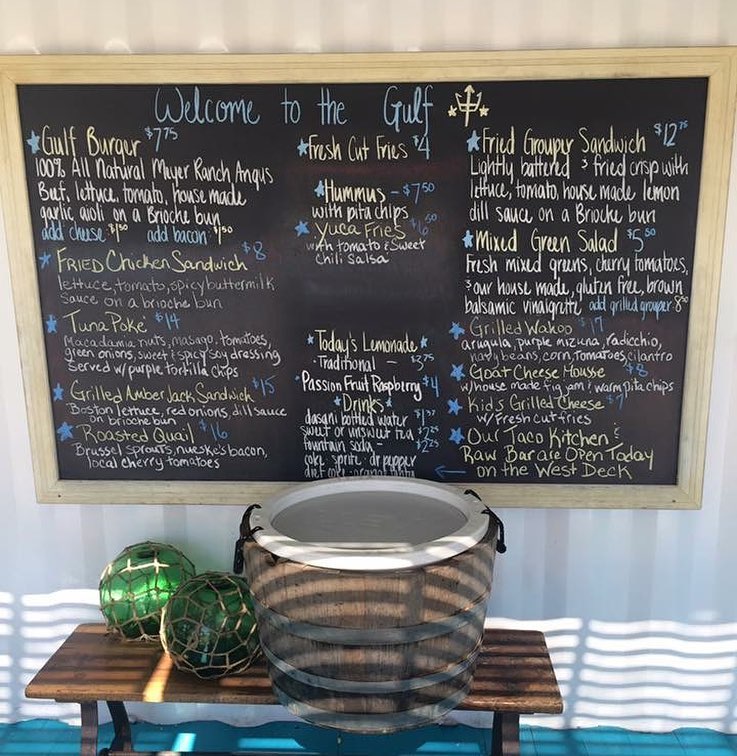 Welcome to the Gulf
Gulf Burger $7.75
100% All Natural Meyer Ranch Angus
Beef, lettuce, tomato, house made
garlic aioli on a Brioche bun
add cheese $1.50 add bacon $1.50
Fried Chicken Sandwich $8
lettuce, tomato, spicy buttermilk
sauce on a brioche bun
Tuna Poke $14
Macadamia nuts, masago, tomatoes,
green onions, sweet & spicy soy dressing
Served w/ purple tortilla chips
Grilled Amber Jack Sandwich $15
Boston lettuce, red onions, dill sauce
on brioche bun
Roasted Quail $16
Brussel sprouts, nueske's bacon,
local cherry tomatoes
Fresh Cut Fries $4
Hummus - $7.50
with pita chips
Yuca Fries
with tomato & sweet
chili salsa
Today's Lemonade
Traditional - 3.75
Passion Fruit Raspberry $4
Drinks
dasani bottled water
sweet or unsweet tea $2.25
fountain soda - $2.25
coke sprite dr pepper
diet coke
Fried Grouper Sandwich $12.75
Lightly battered & fried crisp with
lettuce, tomato, house made lemon
dill sauce on a Brioche bun
Mixed Green Salad $5.50
Fresh mixed greens, cherry tomatoes,
& our house made, gluten free, brown
balsamic vinaigrette add grilled grouper
Grilled Wahoo $17
arugula, purple mizuna, radicchio,
navy beans, corn, tomatoes, cilantro
Goat Cheese Mousse $8
w/ house made fig jam & warm pita chips
Kid's Grilled Cheese $7
w/ Fresh cut fries
Our Taco Kitchen &
Raw Bar are Open Today
on the West Deck